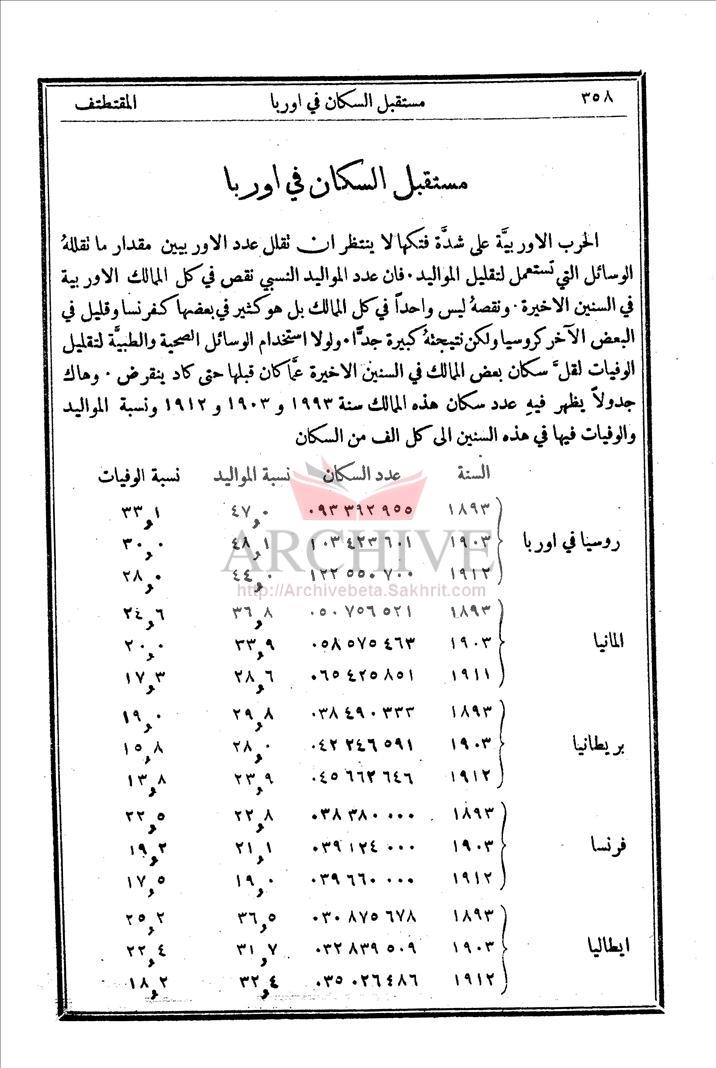 ٣٥٨ مستقبل السكان في اوربا المقتطتف
مستقبل السكان في اوربا
الحرب الاوربيَّة على شدَّة فتكها لا ينتظر ان نقلل عدد الاوربيين مقدار ما نقللهُ
الوسائل التي تستعمل لتقليل المواليد. فان عدد المواليد النسبي نقص في كل الممالك الاوربية
في السنين الاخيرة. ونقصهُ ليس واحداً في كل الممالك بل هو كثير في بعضها كفرنسا وقليل في
البعض الآخر كروسيا ولكن نتيجتهُ كبيرة جدًّا. ولولا استخدام الوسائل الصحية والطبيَّة لتقليل
الوفيات لقلَّ سكان بعض الممالك في السنين الاخيرة عمَّا كان قبلها حتى كاد ينقرض. وهاك
جدولاً يظهر فيهِ عدد سكان هذه الممالك سنة ١٩٩٣ و ١٩٠٣ و ١٩١٢ ونسبة المواليد
والوفيات فيها في هذه السنين الى كل الف من السكان
السنة عدد السكان نسبة المواليد نسبة الوفيات
١٨٩٣ ٠٩٣ ٣٩٢ ٩٥٥ ٤٧,٠ ٣٣,١
روسيا في اوربا ١٩٠٣ ١٠٣ ٤٢٣ ٦٠١ ٤٨,١ ٣٠,٠
١٩١٢ ١٢٢ ٥٥٠ ٧٠٠ ٤٤,٠ ٢٨,٠
١٨٩٣ ٠٥٠ ٧٥٦ ٥٢١ ٣٦,٨ ٢٤,٦
المانيا ١٩٠٣ ٠٥٨ ٥٧٥ ٤٦٣ ٣٣,٩ ٢٠,٠
١٩١١ ٠٦٥ ٤٢٥ ٨٥١ ٢٨,٦ ١٧,٣
١٨٩٣ ٠٣٨ ٤٩٠ ٣٣٣ ٢٩,٨ ١٩,٠
بريطانيا ١٩٠٣ ٠٤٢ ٢٤٦ ٥٩١ ٢٨,٠ ١٥,٨
١٩١٢ ٠٤٥ ٦٦٢ ٦٤٦ ٢٣,٩ ١٣,٨
١٨٩٣ ٠٣٨ ٣٨٠ ٠٠٠ ٢٢,٨ ٢٢,٥
فرنسا ١٩٠٣ ٠٣٩ ١٢٤ ٠٠٠ ٢١,١ ١٩,٢
١٩١٢ ٠٣٩ ٦٦٠ ٠٠٠ ١٩,٠ ١٧,٥
١٨٩٣ ٠٣٠ ٨٧٥ ٦٧٨ ٣٦,٥ ٢٥,٢
ايطاليا ١٩٠٣ ٠٣٢ ٨٣٩ ٥٠٩ ٣١,٧ ٢٢,٤
١٩١٢ ٠٣٥ ٠٢٦ ٤٨٦ ٣٢,٤ ١٨,٢
ARCHIVE
http://Archivebeta.Sakhrit.com